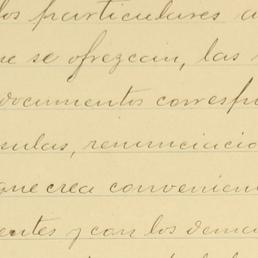 los particulares a
ue se ofrezcan, las
documentos correspo
sulas, renunciacio
que crea convenien
entes y con los demas